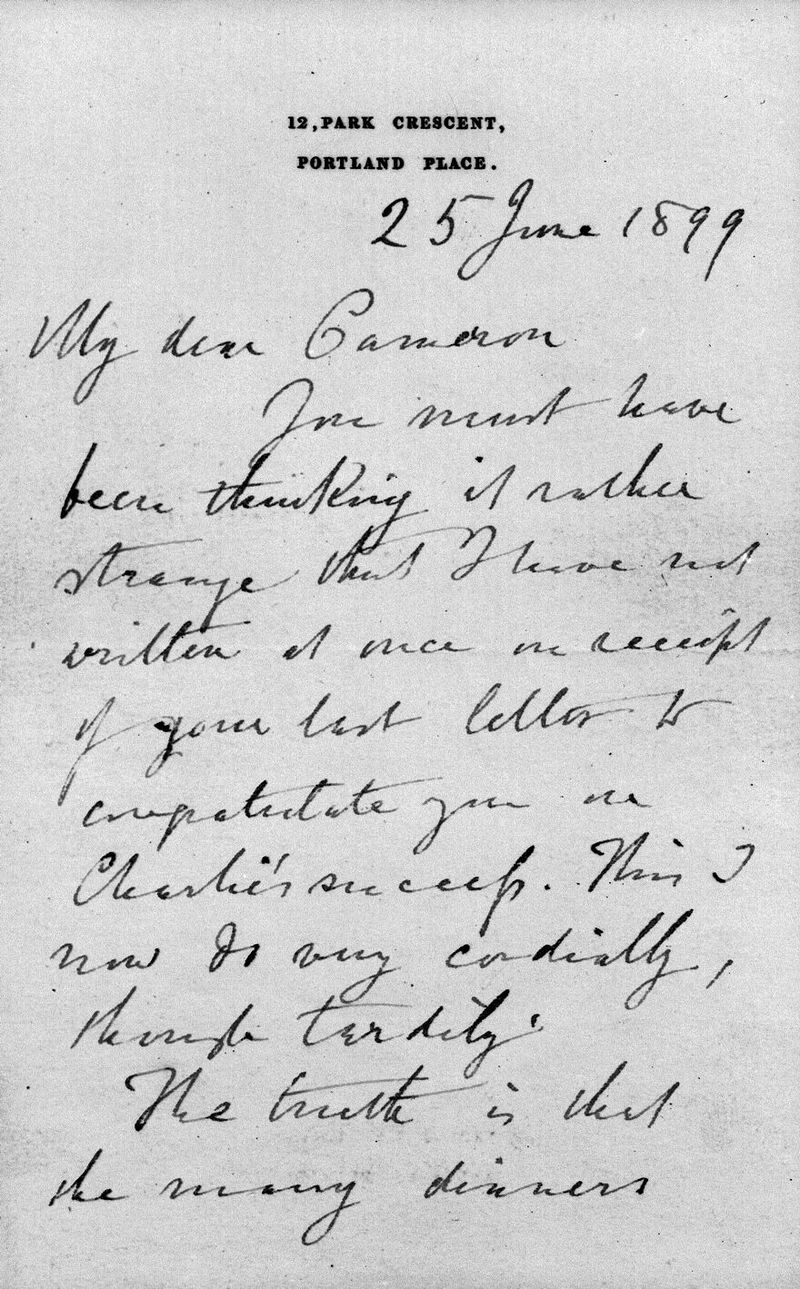 12, PARK CRESCENT,
PORTLAND PLACE.
25 June 1899
My dear Cameron
You must have
been thinking it rather
strange that I have not
written at once on receipt
of your last letter to
congratulate you on
Charlie's success. This I
now do very cordially,
though tardily.
The truth is that
the many dinners